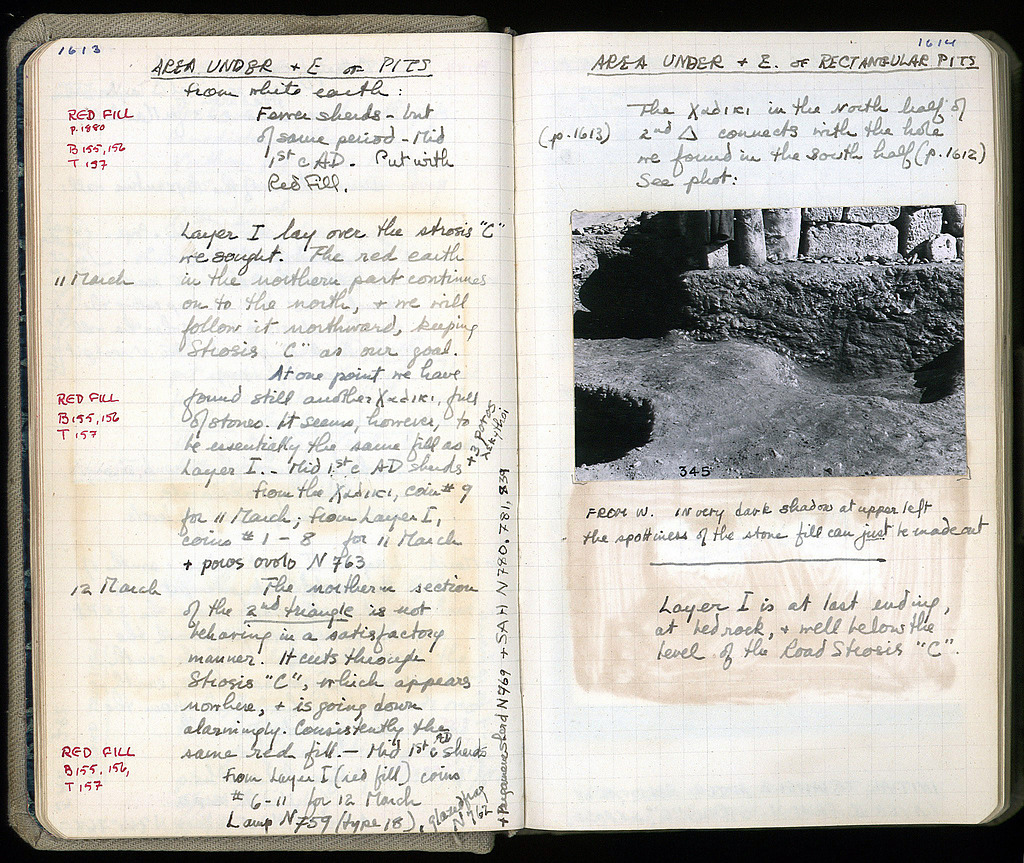 1613
AREA UNDER + E OF PITS
from white earth:
RED FILL
p. 1880
B 155, 156
T 157
Fewer sherds - but
of same period - Mid
1st c AD. Put with
Red Fill.
Layer I lay over the strosis "C"
we sought. The red earth
11 March
in the northern part continues
on to the north, + we will
follow it northward, keeping
Strosis "C" as our goal.
At one point we have
RED FILL
B 155, 156
T 157
found still another Χαδικι, full
of stones. It seems, however, to
be essentially the same fill as
Layer I. - Mid 1st c AD sherds
+ 3 poros
from the Χαδικι, coin # 9
for 11 March; from Layer I,
coins # 1 - 8 for 11 March
+ poros ovolo N 763
12 March
The northern section
of the 2nd triangle is not
behaving in a satisfactory
manner. It cuts through
Strosis "C", which appears
nowhere, + is going down
alarmingly. Consistently the
same red fill. - Mid 1st c AD sherds
RED FILL
B 155, 156,
T 157
from Layer I (red fill) coins
# 6-11 for 12 March
Lamp N 759 (type 18), glazed frag
N 762
+ Pergamene sherd N 769 + SAH N 780, 781, 839
1614
AREA UNDER + E. OF RECTANGULAR PITS
The Χαδικι in the North half of
(p. 1613)
2nd Δ connects with the hole
we found in the south half (p. 1612)
See phot:
345
FROM W. IN very dark shadow at upper left
the spottiness of the stone fill can just be made out
Layer I is at last ending,
at bedrock, + well below the
level of the Road Strosis "C".